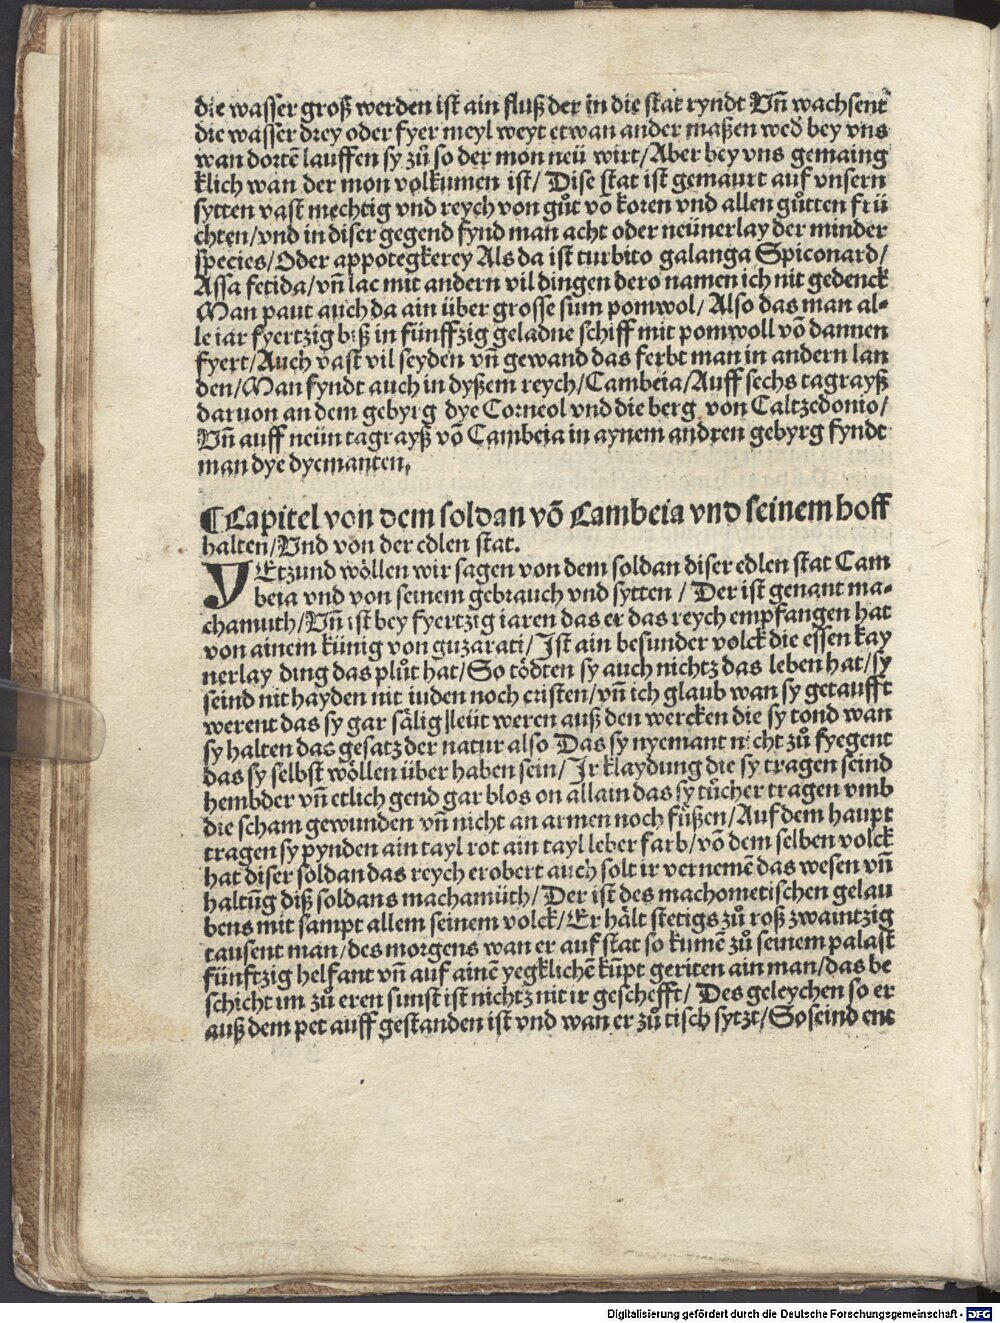 die wasser groß werden ist ain fluß der in die stat ryndt Vñ wachsent
die wasser drey oder fyer meyl weyt etwan ander maßen wed̄ bey vns
wan dortē lauffen sy zů so der mon neü wirt/Aber bey vns gemaing
klich wan der mon volkumen ist/ Dise stat ist gemaurt auf vnsern
sytten vast mechtig vnd reych von gůt vō koren vnd allen gůtten frü
chten/vnd in diser gegend fynd man acht oder neünerlay der minder
species/Oder appotegkerey Als da ist turbito galanga Spiconard/
Assa fetida/vñ lac mit andern vil dingen dero namen ich nit gedenck
Man paut auch da ain über grosse sum pomwol/ Also das man al-
le iar fyertzig biß in fünffzig geladne schiff mit pomwoll vō dannen
fyert/Auch vast vil seyden vñ gewand das ferbt man in andern lan
den/Man fyndt auch in dyßem reych/Cambeia/Auff sechs tagrayß
daruon an dem gebyrg dye Corneol vnd die berg von Caltzedonio/
Vñ auff neün tagrayß vō Cambeia in aynem andren gebyrg fyndt
man dye dyemanten.
¶Capitel von dem soldan vō Cambeia vnd seinem hoff
halten/Vnd von der edlen stat.
YEtzund wöllen wir sagen von dem soldan diser edlen stat Cam
beia vnd von seinem gebrauch vnd sytten / Der ist genant ma-
chamuth/Vñ ist bey fyertzig iaren das er das reych empfangen hat
von ainem künig von guzarati/Ist ain besunder volck die essen kay
nerlay ding das plůt hat/So tödten sy auch nichtz das leben hat/sy
seind nit hayden nit iuden noch cristen/vñ ich glaub wan sy getaufft
werent das sy gar sälig leüt weren auß den wercken die sy tond wan
sy halten das gesatz der natur also Das sy nyemant nicht zů fyegent
das sy selbst wöllen über haben sein/Ir klaydung die sy tragen seind
hembder vñ etlich gend gar blos on allain das sy tůcher tragen vmb
die scham gewunden vñ nicht an armen noch füßen/Auf dem haupt
tragen sy pynden ain tayl rot ain tayl leber farb/vō dem selben volck
hat diser soldan das reych erobert auch solt ir vernemē das wesen vñ
haltūg diß soldans machamüth/Der ist des machometischen gelau
bens mit sampt allem seinem volck/Er hält stetigs zů roß zwaintzig
tausent man/des morgens wan er auf stat so kumē zů seinem palast
fünftzig helfant vñ auf ainē yegklichē kūpt geriten ain man/das be
schicht im zů eren sunst ist nichtz nit ir geschefft/ Des geleychen so er
auß dem pet auff gestanden ist vnd wan er zů tisch sytzt/So seind ent
Digitalisierung gefördert durch die Deutsche Forschungsgemeinschaft - DFG